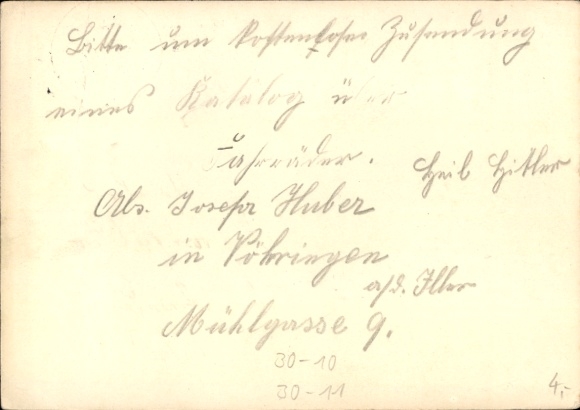 Bitte um kostenlose Zusendung
eines Katalog über
Fahrräder. Heil Hitler
Abs. Josefa Huber
in Vöhringen
a/d. Iller
Mühlgasse 9.
30-10
30-11
4,-